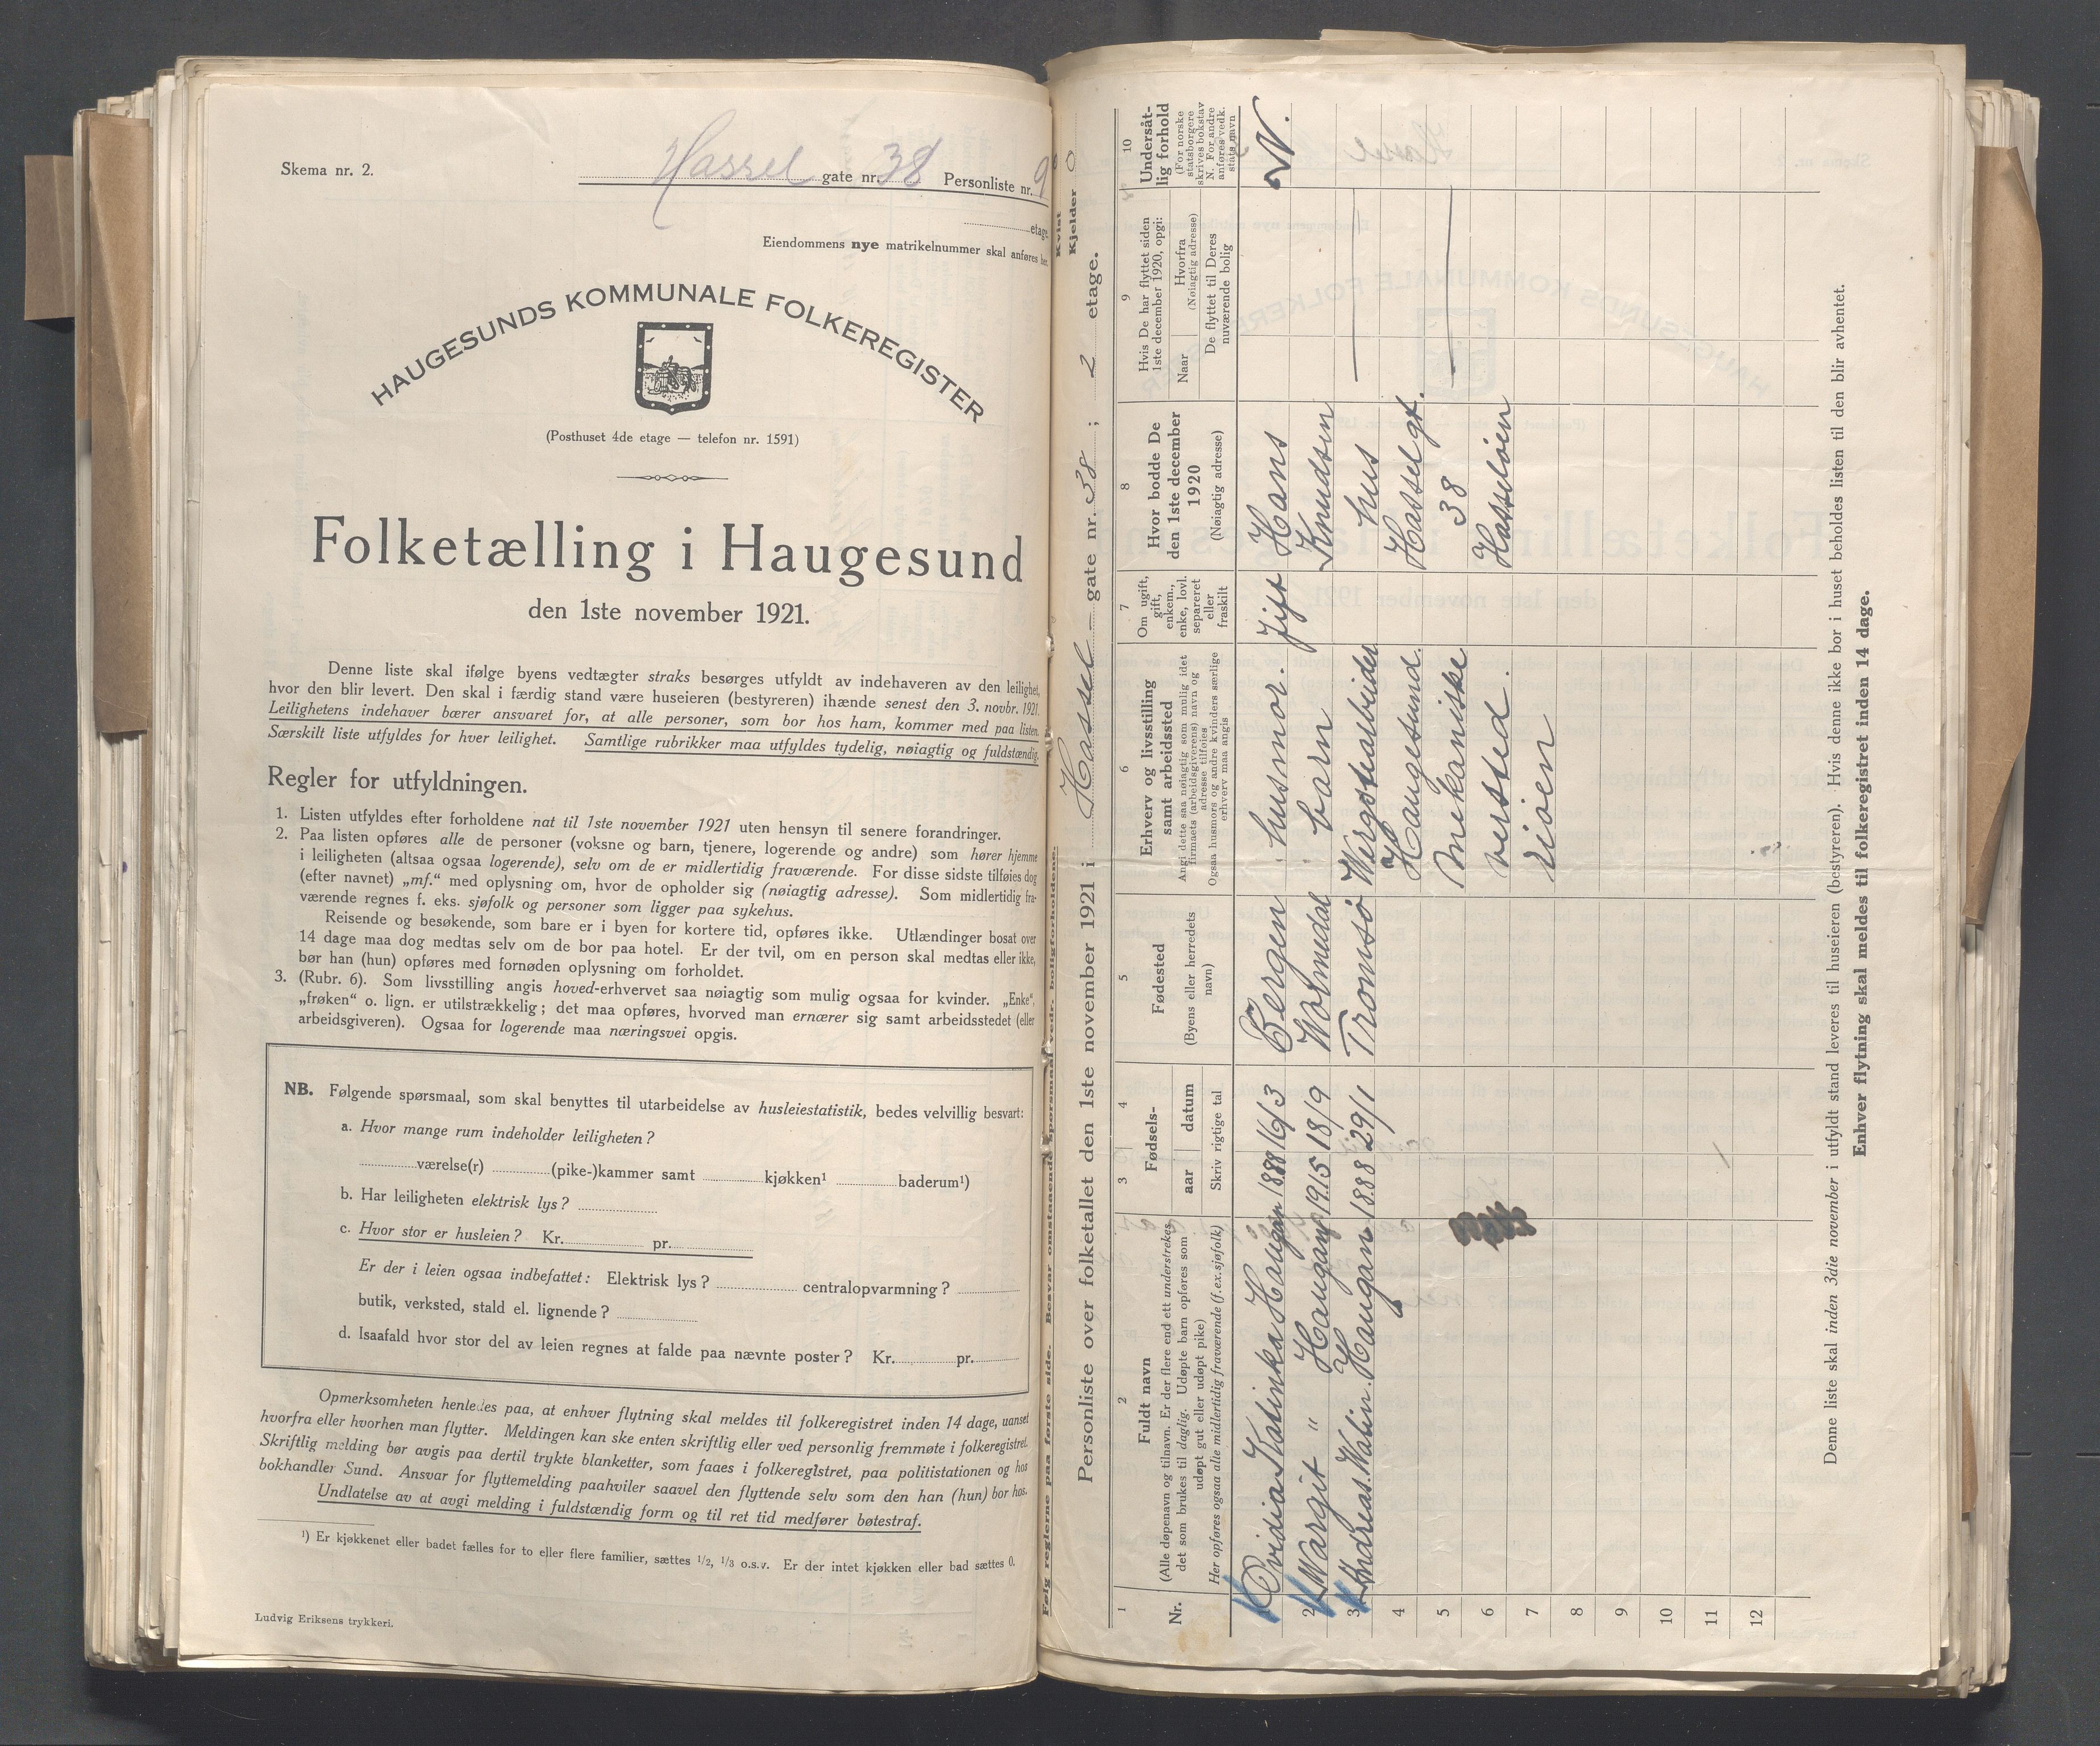 Skema nr. 2.
Hassel gate nr. 38 Personliste nr. 9
etage
Eiendommens nye matrikelnummer skal anføres her.
HAUGESUNDS KOMMUNALE FOLKEREGISTER
(Posthuset 4de etage — telefon nr. 1591)
Folketælling i Haugesund
den 1ste november 1921.
Denne liste skal ifølge byens vedtægter straks besørges utfyldt av indehaveren av den leilighet,
hvor den blir levert. Den skal i færdig stand være huseieren (bestyreren) ihænde senest den 3. novbr. 1921.
Leilighetens indehaver bærer ansvaret for, at alle personer, som bor hos ham, kommer med paa listen.
Særskilt liste utfyldes for hver leilighet. Samtlige rubrikker maa utfyldes tydelig, nøiagtig og fuldstændig.
Regler for utfyldningen.
1. Listen utfyldes efter forholdene nat til 1ste november 1921 uten hensyn til senere forandringer.
2. Paa listen opføres alle de personer (voksne og barn, tjenere, logerende og andre) som hører hjemme
i leiligheten (altsaa ogsaa logerende), selv om de er midlertidig fraværende. For disse sidste tilføies dog
(efter navnet) „mf.“ med oplysning om, hvor de opholder sig (nøiagtig adresse). Som midlertidig fra-
værende regnes f. eks. sjøfolk og personer som ligger paa sykehus.
Reisende og besøkende, som bare er i byen for kortere tid, opføres ikke. Utlændinger bosat over
14 dage maa dog medtas selv om de bor paa hotel. Er der tvil, om en person skal medtas eller ikke,
bør han (hun) opføres med fornøden oplysning om forholdet.
3. (Rubr. 6). Som livsstilling angis hoved-erhvervet saa nøiagtig som mulig ogsaa for kvinder. „Enke“,
„frøken“ o. lign. er utilstrækkelig; det maa opføres, hvorved man ernærer sig samt arbeidsstedet (eller
arbeidsgiveren). Ogsaa for logerende maa næringsvei opgis.
NB. Følgende spørsmaal, som skal benyttes til utarbeidelse av husleiestatistik, bedes velvillig besvart:
a. Hvor mange rum indeholder leiligheten?
værelse(r) (pike-)kammer samt kjøkken¹ baderum¹)
b. Har leiligheten elektrisk lys?
c. Hvor stor er husleien? Kr. pr.
Er der i leien ogsaa indbefattet: Elektrisk lys? centralopvarmning?
butik, verksted, stald el. lignende?
d. Isaafald hvor stor del av leien regnes at falde paa nævnte poster? Kr. pr.
Opmerksomheten henledes paa, at enhver flytning skal meldes til folkeregistret inden 14 dage, uanset
hvorfra eller hvorhen man flytter. Meldingen kan ske enten skriftlig eller ved personlig fremmøte i folkeregistret.
Skriftlig melding bør avgis paa dertil trykte blanketter, som faaes i folkeregistret, paa politistationen og hos
bokhandler Sund. Ansvar for flyttemelding paahviler saavel den flyttende selv som den han (hun) bor hos.
Undlatelse av at avgi melding i fuldstændig form og til ret tid medfører bøtestraf.
¹) Er kjøkkenet eller badet fælles for to eller flere familier, sættes 1/2, 1/3 o.s.v. Er der intet kjøkken eller bad sættes 0.
Ludvig Eriksens trykkeri.
Følg reglerne paa første side. Besvar omstaaende spørsmaal vedr. boligforholdene.
Kvist
Kjelder 0
Personliste over folketallet den 1ste november 1921 i Hassel gate nr. 38; 2 etage.
1 2 3 4 5 6 7 8 9 10
Nr.
Fuldt navn
(Alle døpenavn og tilnavn. Er der flere end ett understrekes
det som brukes til daglig. Udøpte barn opføres som
udøpt gut eller udøpt pike)
Her opføres ogsaa alle midlertidig fraværende (f.ex. sjøfolk)
Fødsels-
aar datum
Skriv rigtige tal
Fødested
(Byens eller herredets
navn)
Erhverv og livsstilling
samt arbeidssted
Angi dette saa nøiagtig som mulig idet
firmaets (arbeidsgiverens) navn og
adresse tilføies
Ogsaa husmors og andre kvinders særlige
erhverv maa angis
Om ugift,
gift,
enkem.,
enke, lovl.
separeret
eller
fraskilt
Hvor bodde De
den 1ste december
1920
(Nøiagtig adresse)
Hvis De har flyttet siden
1ste december 1920, opgi:
Naar
Hvorfra
(Nøiagtig adresse)
De flyttet til Deres
nuværende bolig
Undersåt-
lig forhold
(For norske
statsborgere
skrives bokstav
N. For andre
anføres vedk.
stats navn
1 Ovidia Katinka Haugan 1888 16/3 Bergen husmor. gift Hans N.
2 Margit " Haugan 1915 18/9 barn Knudsen
3 Andreas. Haugan 1888 29/1 Tromsö hus
4 Haugesund Hasselgt.
5 mekaniske 38
6 versted. Hasseløen
7
8
9
10
11
12
Denne liste skal inden 3die november i utfyldt stand leveres til huseieren (bestyreren). Hvis denne ikke bor i huset beholdes listen til den blir avhentet.
Enhver flytning skal meldes til folkeregistret inden 14 dage.